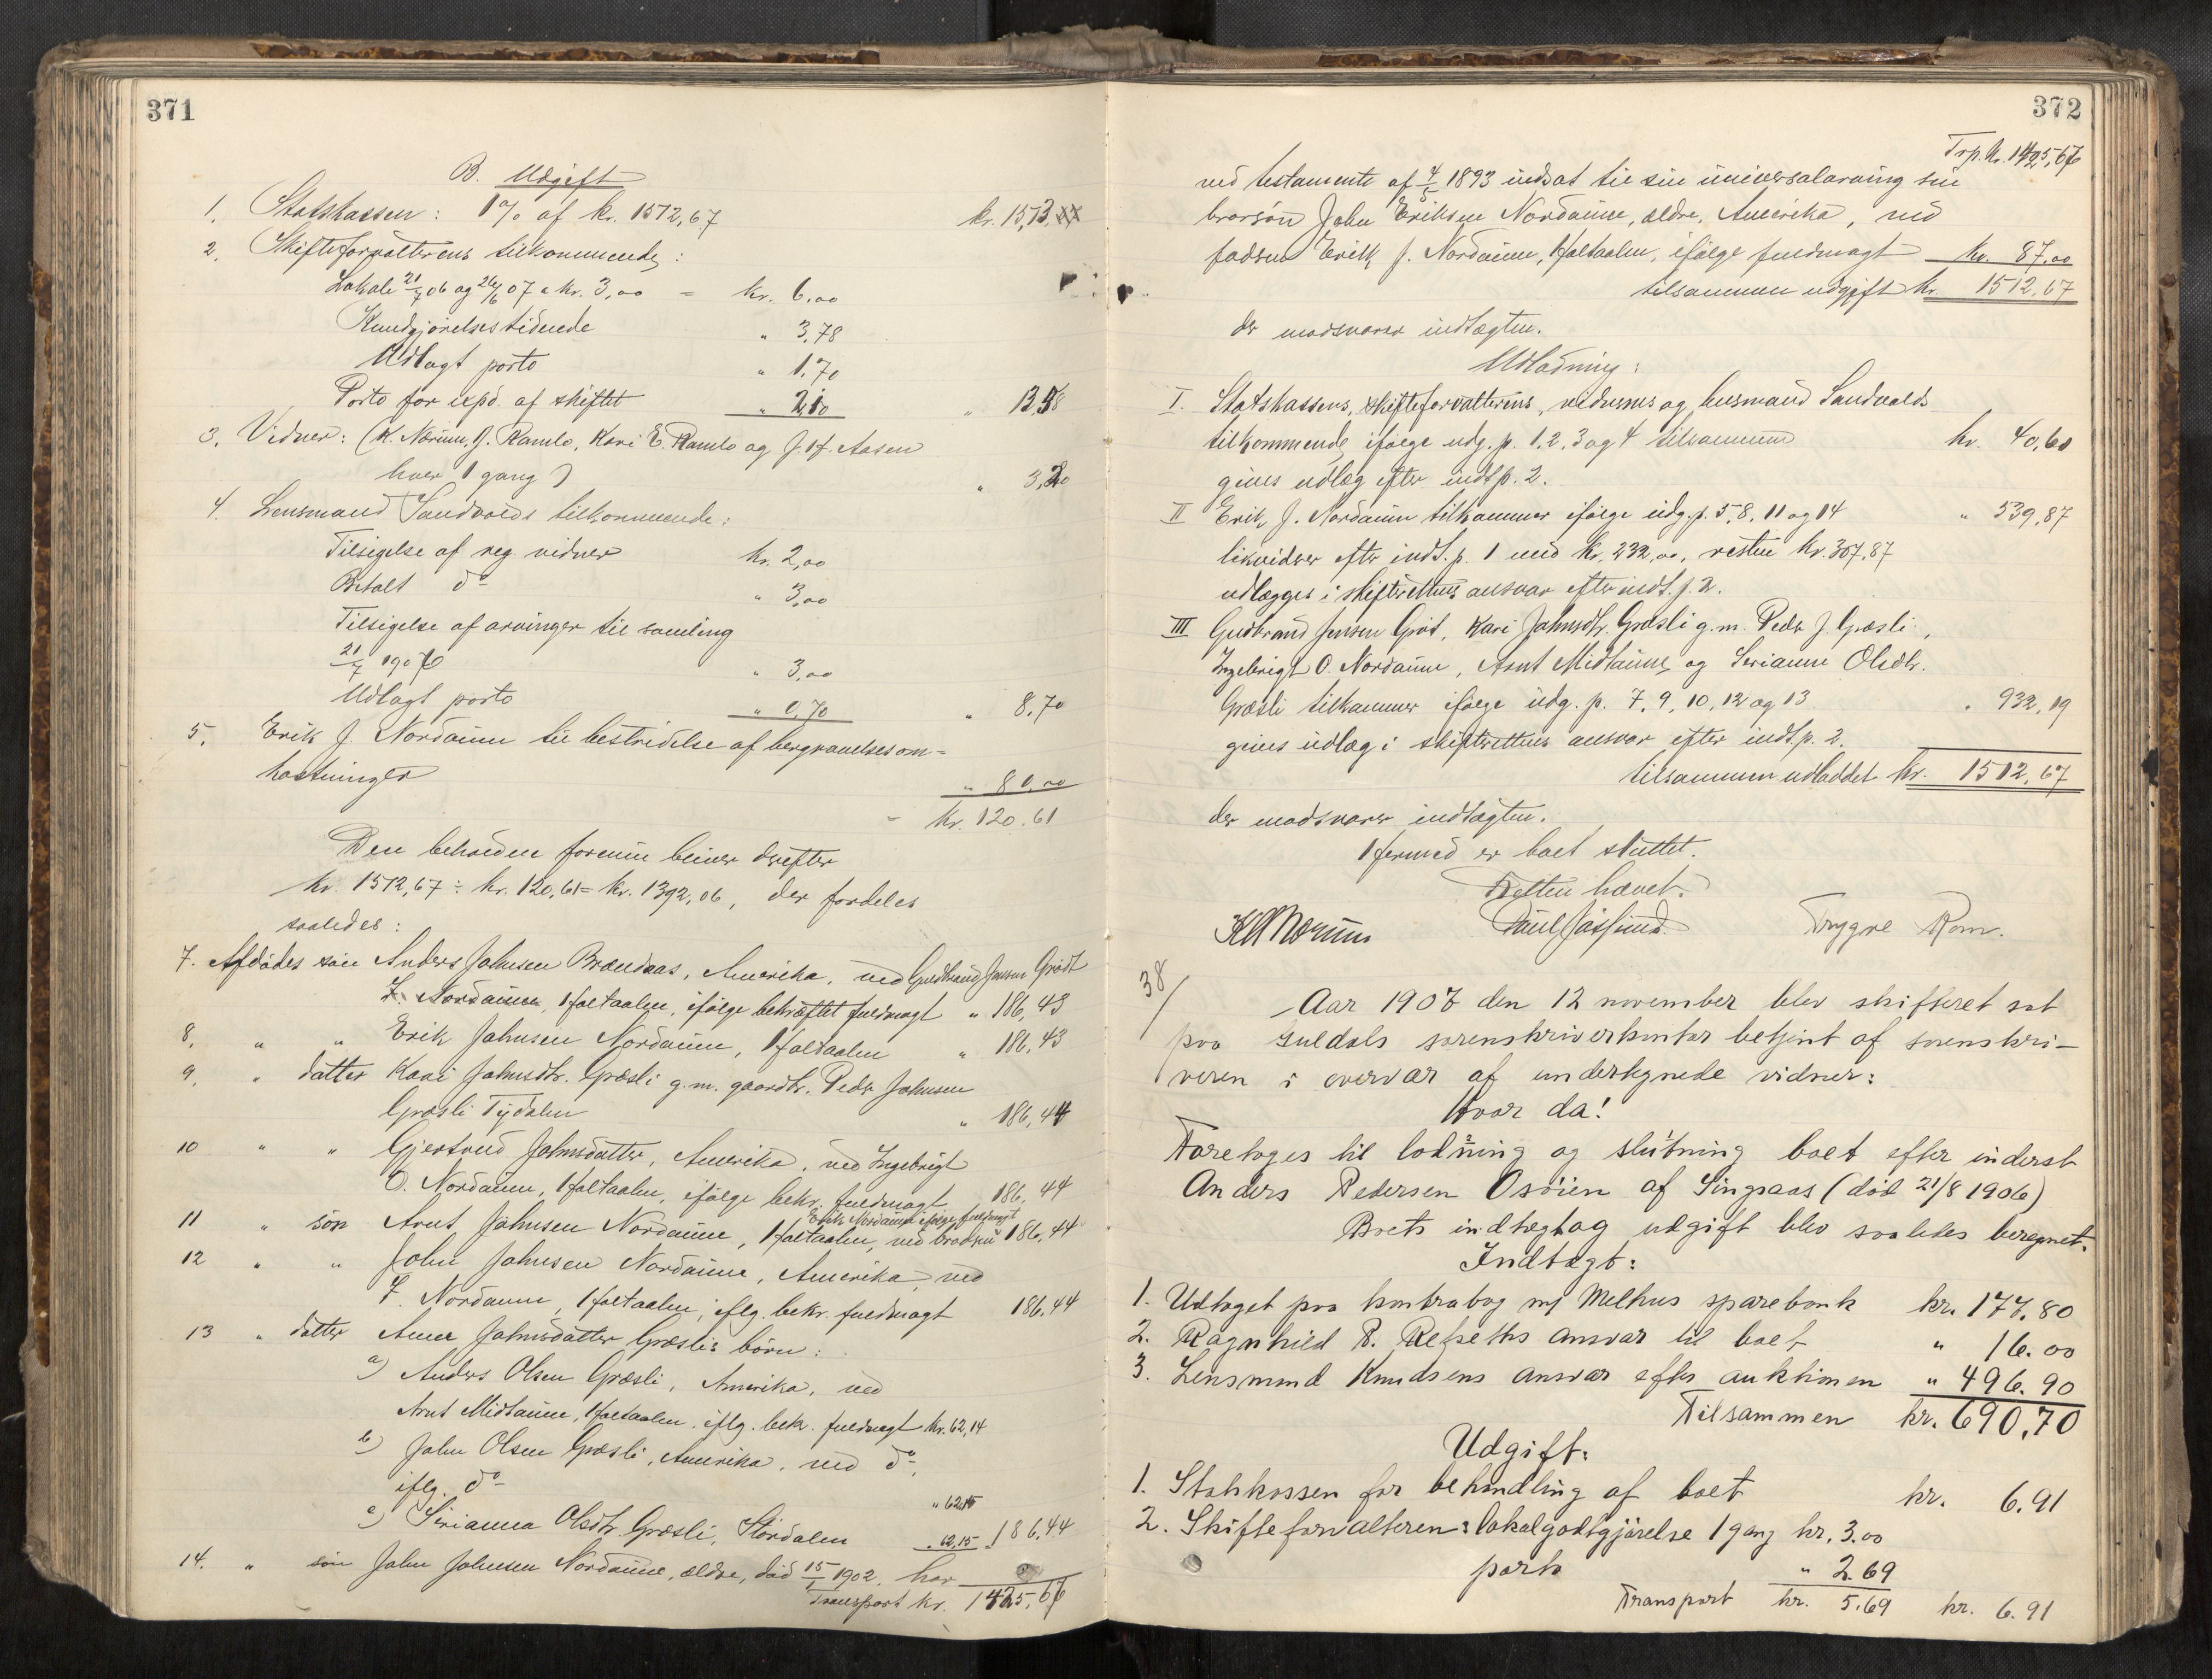 371
B. Udgift
1. Statskassen: 1% af kr. 1512,67 kr. 15,13
2. Skifteforvalterens tilkommende:
Lokale 21/7 06 og 26/6 07 a kr. 3,00 = kr. 6,00
Kundgjørelsestidende " 3,78
Udlagt porto " 1,70
Porto for exped. af skiftet " 2,10 " 13,58
3. Vidner: (K. Nærum, J. Ramlo, Kari E. Ramlo og J. H. Aasen
hver 1 gang) " 3,20
4. Lensmand Sandvolds tilkommende:
Tilsigelse af reg. vidner kr. 2,00
Betalt do " 3,00
Tilsigelse af arvinger til samling
21/7 1906 " 3,00
Udlagt porto " 0,70 " 8,70
5. Erik J. Nordaune til bestridelse af begravelsesom-
kostninger " 80,00
kr. 120.61
Den beholdne formue bliver derefter
kr. 1512,67 ÷ kr. 120,61 = kr. 1392,06, der fordeles
saaledes:
7. Afdødes søn Anders Johnsen Brændaas, Amerika, ved Gudbrand Jensen Grødt
Nordaune, Holtaalen, ifølge bekræftet fuldmagt " 186,43
8. " " Erik Johnsen Nordaune, Holtaalen " 186,43
9. " datter Kari Johnsdtr. Græsli g.m. gaardbr. Peder Johnsen
Græsli Tydalen " 186,44
10 " " Gjertrud Johnsdatter, Amerika, ved Ingebrigt
O. Nordaune, Holtaalen, ifølge bekr. fuldmagt 186,44
Erik Nordaune ifølge fuldmagt
11 " søn Arnt Johnsen Nordaune, Holtaalen, ved broderen 186,44
12 " " John Johnsen Nordaune, Amerika, ved
Nordaune, Holtaalen, iflg. bekr. fuldmagt 186,44
13 " datter Anne Johnsdatter Græslis børn:
a) Anders Olsen Græsli, Amerika, ved
Arnt Midtaune, Holtaalen, iflg. bekr. fuldmagt kr. 62,14
b) John Olsen Græsli, Amerika, ved do,
iflg. do " 62,15
c) Serianna Olsdtr. Græsli, Størdalen " 62,15 " 186,44
14. " søn John Johnsen Nordaune, ældre, død 15/1 1902, har
Transport kr. 1425,67
372
Trp. kr. 1425,67
ved testamente af 4/5 1893 indsat til sin universalarving sin
brorsøn John Eriksen Nordaune, ældre, Amerika, ved
faderen Erik J. Nordaune, Holtaalen, ifølge fuldmagt kr. 87,00
tilsammen udgift kr. 1512,67
der modsvarer indtægten.
Udlodning:
I. Statskassens, skifteforvalterens, vidnernes og lensmand Sandvolds
tilkommende ifølge udg. p. 1, 2, 3 og 4 tilsammen kr. 40,61
gives udlæg efter indt. p. 2.
II Erik J. Nordaune tilkommer ifølge udg. p. 5, 8, 11 og 14 " 539,87
likvideres efter indt. p. 1 med kr. 232,00, resten kr. 307,87
udlægges i skifterettens ansvar efter indt. p. 2.
III Gudbrand Jensen Grøt, Kari Johnsdtr. Græsli g.m. Peder J. Græsli,
Ingebrigt O. Nordaune, Arnt Midtaune og Serianne Olsdtr.
Græsli tilkommer ifølge udg. p. 7, 9, 10, 12 og 13 " 932,19
gives udlæg i skifterettens ansvar efter indt. p. 2.
tilsammen udloddet kr. 1512,67
der modsvarer indtægten.
Hermed er boet sluttet.
Retten hævet.
K Nærum Paul Trygve Rom.
38/
Aar 1907 den 12 november blev skifteret sat
paa Guldals sorenskriverkontor betjent af sorenskri-
veren i overvær af undertegnede vidner:
Hvor da!
Foretoges til lodning og slutning boet efter inderst
Anders Pedersen Osøien af Singsaas (død 21/8 1906)
Boets indtægt og udgift blev saaledes beregnet.
Indtægt:
1. Udtaget paa kontrabog m/ Melhus sparebank kr. 177.80
2. Ragnhild P. Refseths ansvar til boet " 16.00
3. Lensmand Knudsens ansvar efter auktionen " 496.90
Tilsammen kr. 690,70
Udgift:
1. Statskassen for behandling af boet kr. 6.91
2. Skifteforvalteren: lokalgodtgjørelse 1 gang kr. 3.00
porto " 2.69
Transport kr. 5.69 kr. 6.91